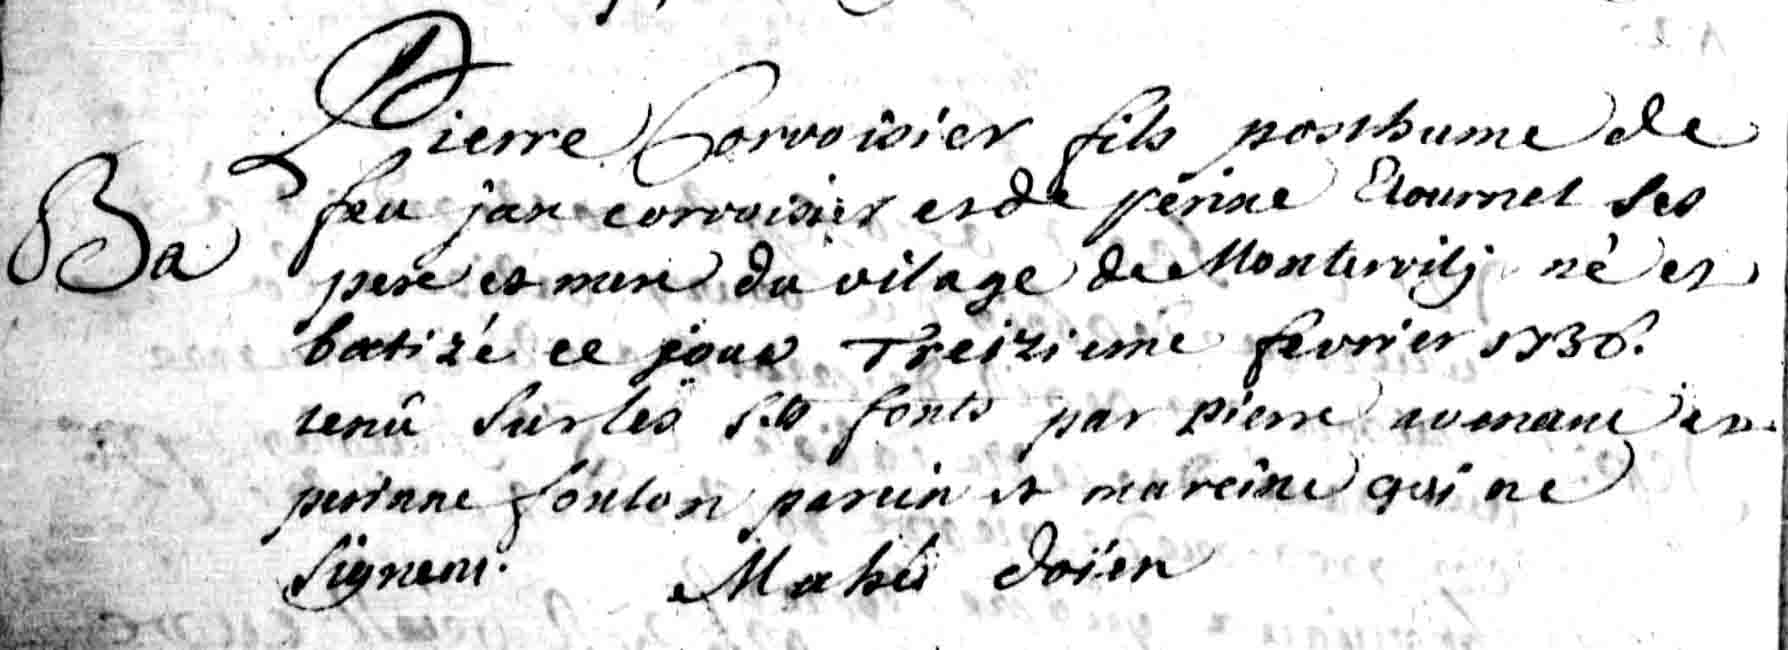 Pierre Corvoisier fils posthume de
Ba
feu jan corvoisier et de perine Etournel ses
pere et mere du vilage de Montervilj né et
batizé ce jour Treizieme fevrier 1736.
tenû sur les sts fonts par pierre avenant et
perinne foulon parein et mareine qui ne
signent. Mahé doïen